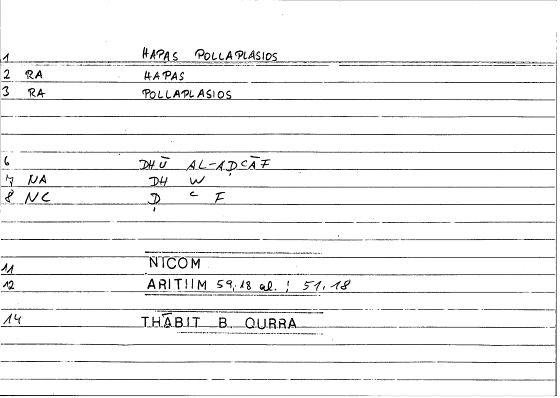 1 HAPAS POLLAPLASIOS
2 RA HAPAS
3 RA POLLAPLASIOS
6 DHŪ AL-AḌcĀF
7 NA DH W
8 NC Ḍ c F
11 NICOM
12 ARITIIM 59,18 al. ; 51,18
14 THĀBIT B. QURRA